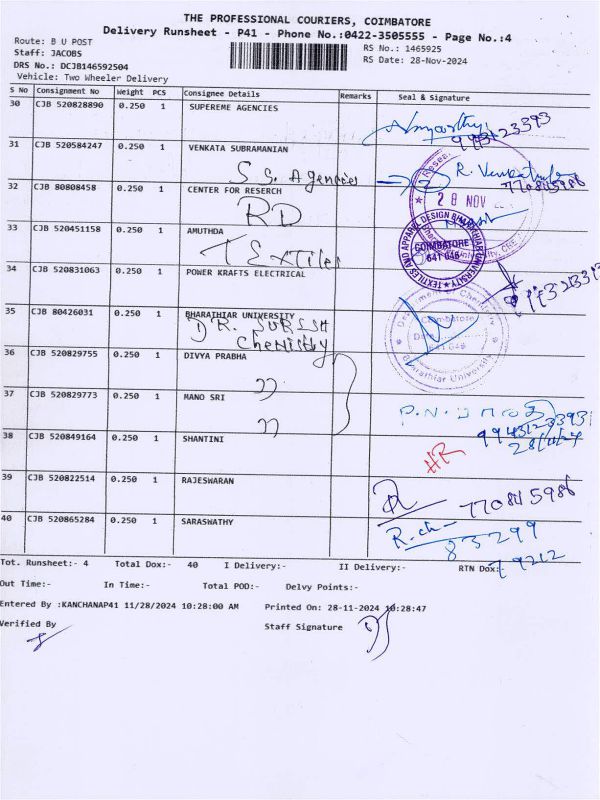 THE PROFESSIONAL COURIERS, COIMBATORE
Delivery Runsheet - P41 - Phone No.:0422-3505555 - Page No.:4
Route: B U POST
RS No.: 1465925
Staff: JACOBS
RS Date: 28-Nov-2024
DRS No.: DCJB146592504
Vehicle: Two Wheeler Delivery
S No Consignment No Weight PCS Consignee Details Remarks Seal & Signature
30 CJB 520828890 0.250 1 SUPEREME AGENCIES
993123393
31 CJB 520584247 0.250 1 VENKATA SUBRAMANIAN
S. S. Agencies
R. Venkat
32 CJB 80808458 0.250 1 CENTER FOR RESERCH
7708415986
RD
28 NOV
33 CJB 520451158 0.250 1 AMUTHDA
TEXtiles
TEXTILES AND APPAREL DESIGN BHARATHIAR UNIVERSITY
COIMBATORE
641 046
34 CJB 520831063 0.250 1 POWER KRAFTS ELECTRICAL
35 CJB 80426031 0.250 1 BHARATHIAR UNIVERSITY
DR. SURESH
Chemistry
Department of Chemistry
Coimbatore
Date
641 046
Bharathiar University
36 CJB 520829755 0.250 1 DIVYA PRABHA
37 CJB 520829773 0.250 1 MANO SRI
P.N.
9943123393
28/11/24
38 CJB 520849164 0.250 1 SHANTINI
HR
39 CJB 520822514 0.250 1 RAJESWARAN
7708415986
40 CJB 520865284 0.250 1 SARASWATHY
83299
79212
Tot. Runsheet:- 4 Total Dox:- 40 I Delivery:- II Delivery:- RTN Dox:-
Out Time:- In Time:- Total POD:- Delvy Points:-
Entered By :KANCHANAP41 11/28/2024 10:28:00 AM Printed On: 28-11-2024 10:28:47
Verified By Staff Signature